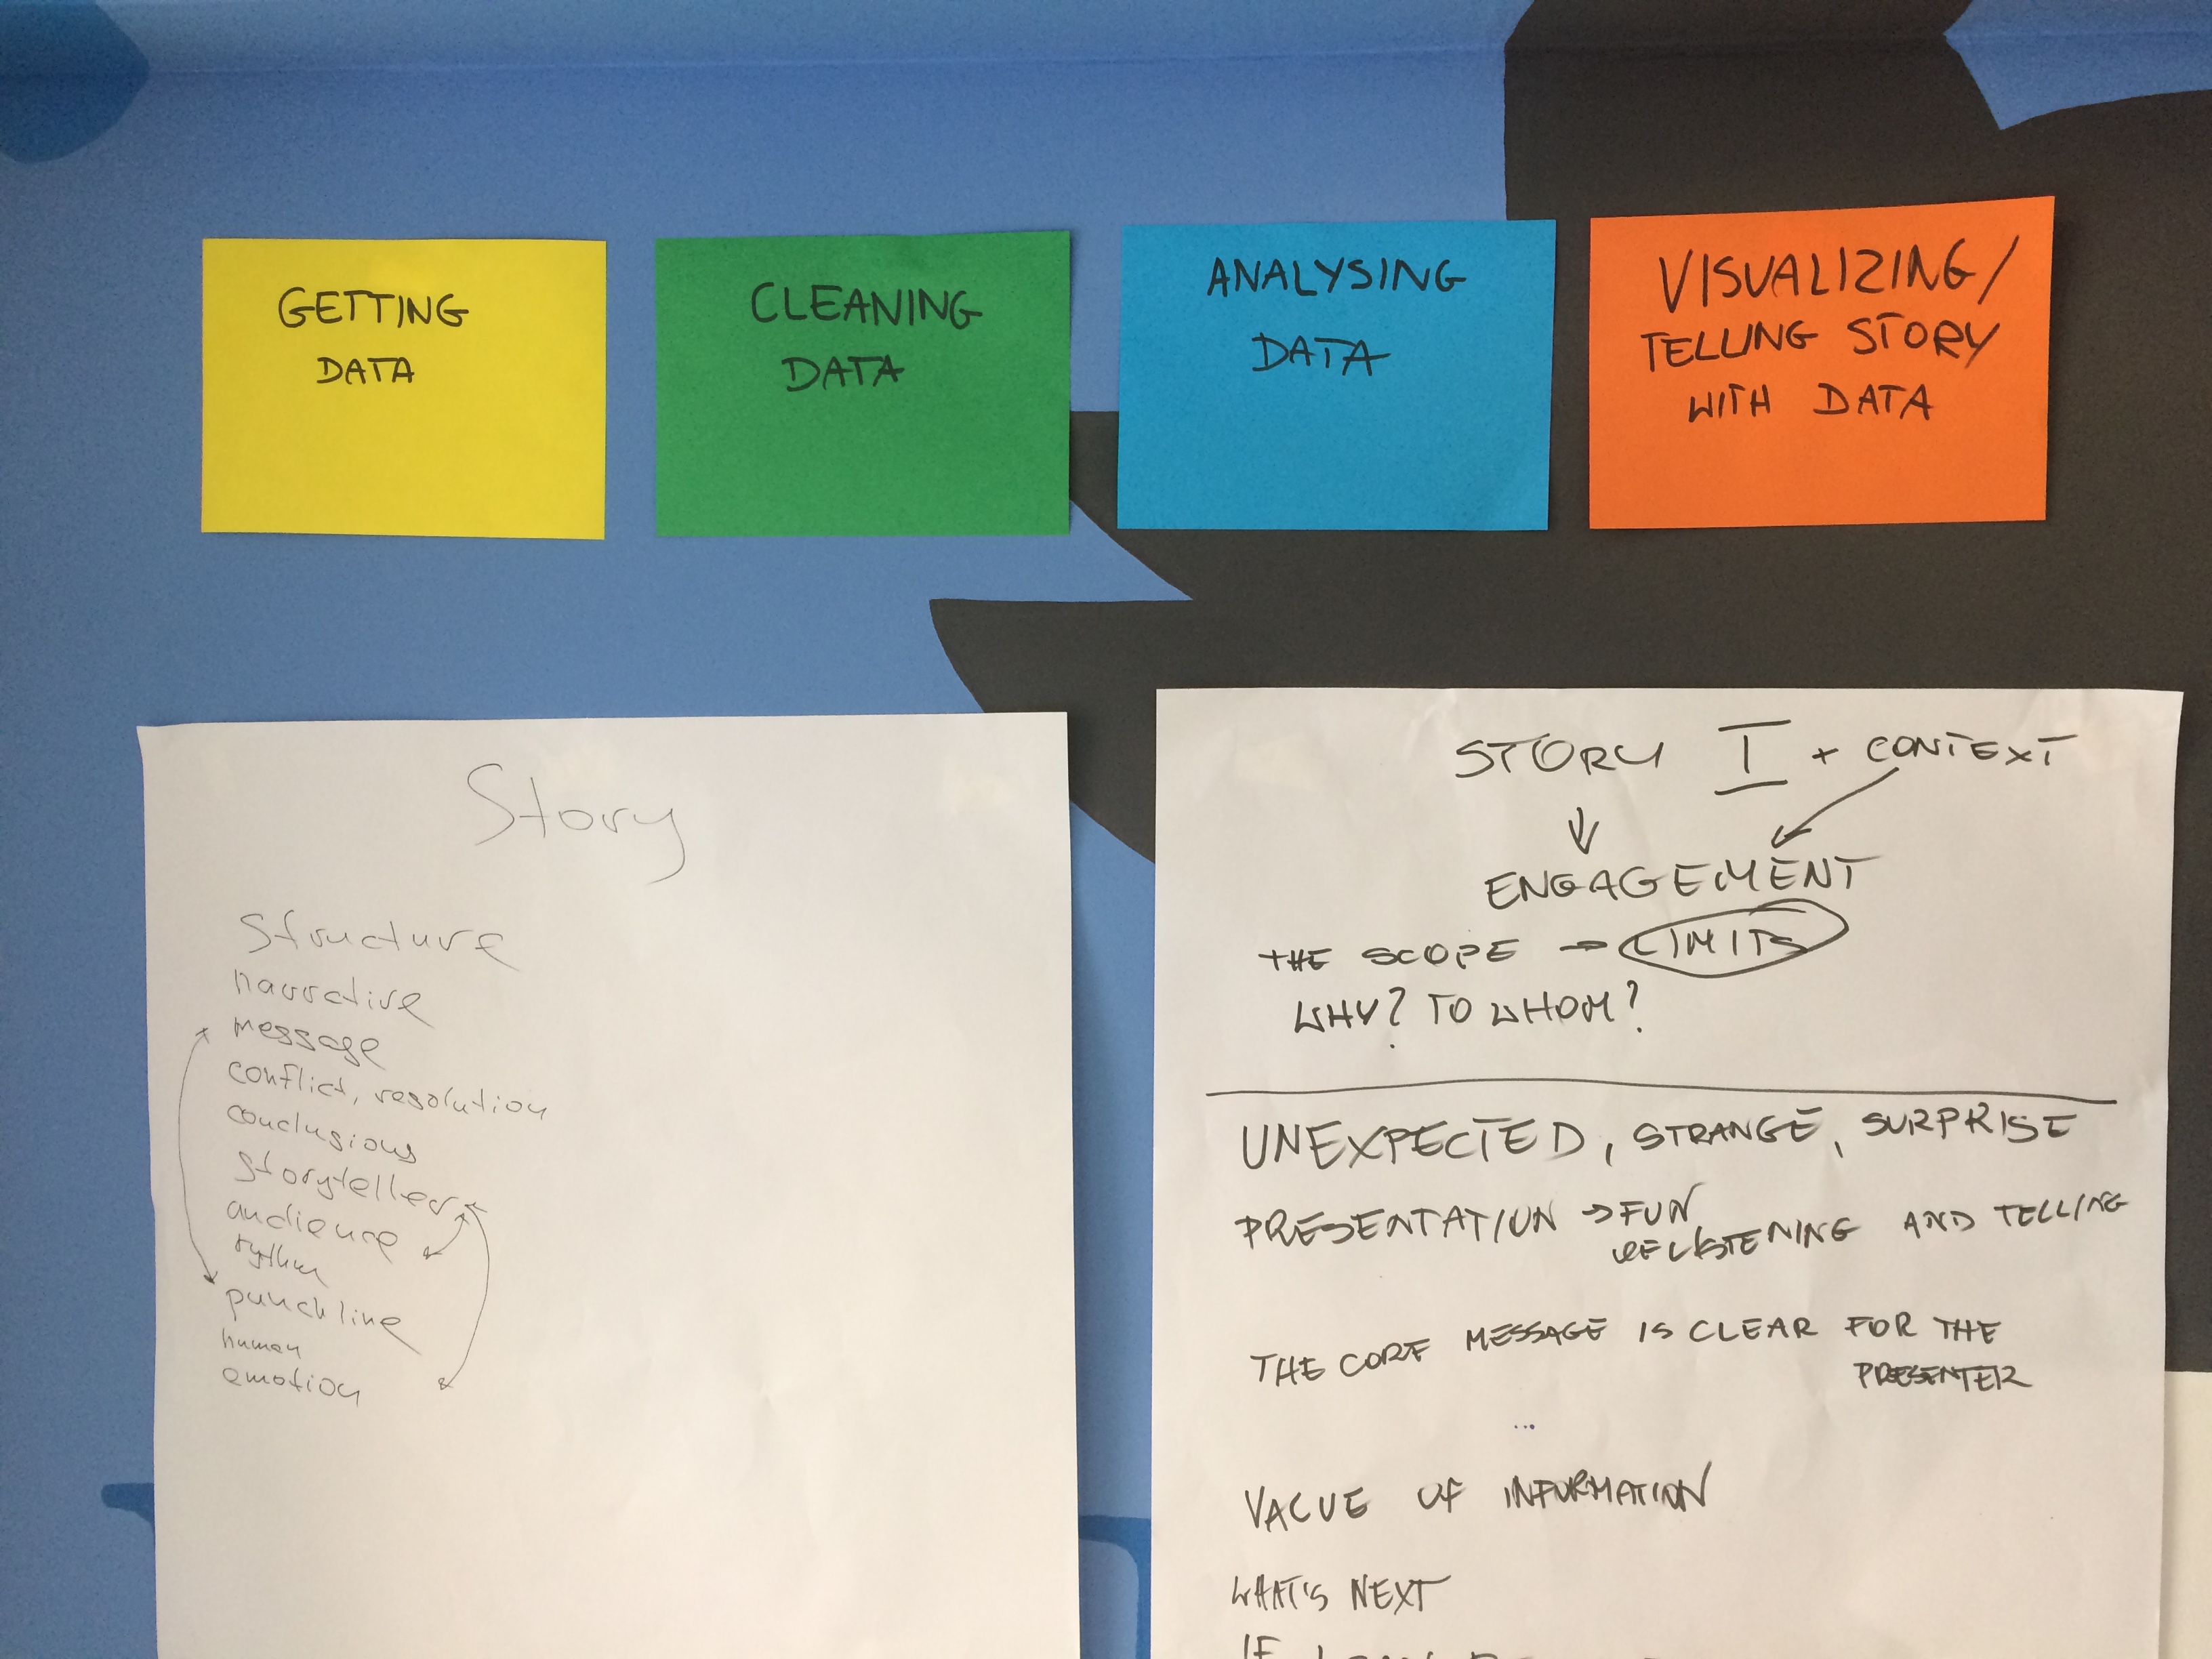 GETTING
DATA
CLEANING
DATA
ANALYSING
DATA
VISUALIZING/
TELLING STORY
WITH DATA
Story
structure
narrative
message
conflict, resolution
conclusions
storyteller
audience
rythm
punchline
human
emotion
STORY I + CONTEXT
ENGAGEMENT
THE SCOPE → LIMITS
WHY? TO WHOM?
UNEXPECTED, STRANGE, SURPRISE
PRESENTATION → FUN
LISTENING AND TELLING
THE CORE MESSAGE IS CLEAR FOR THE
PRESENTER
...
VALUE OF INFORMATION
WHAT'S NEXT
IF